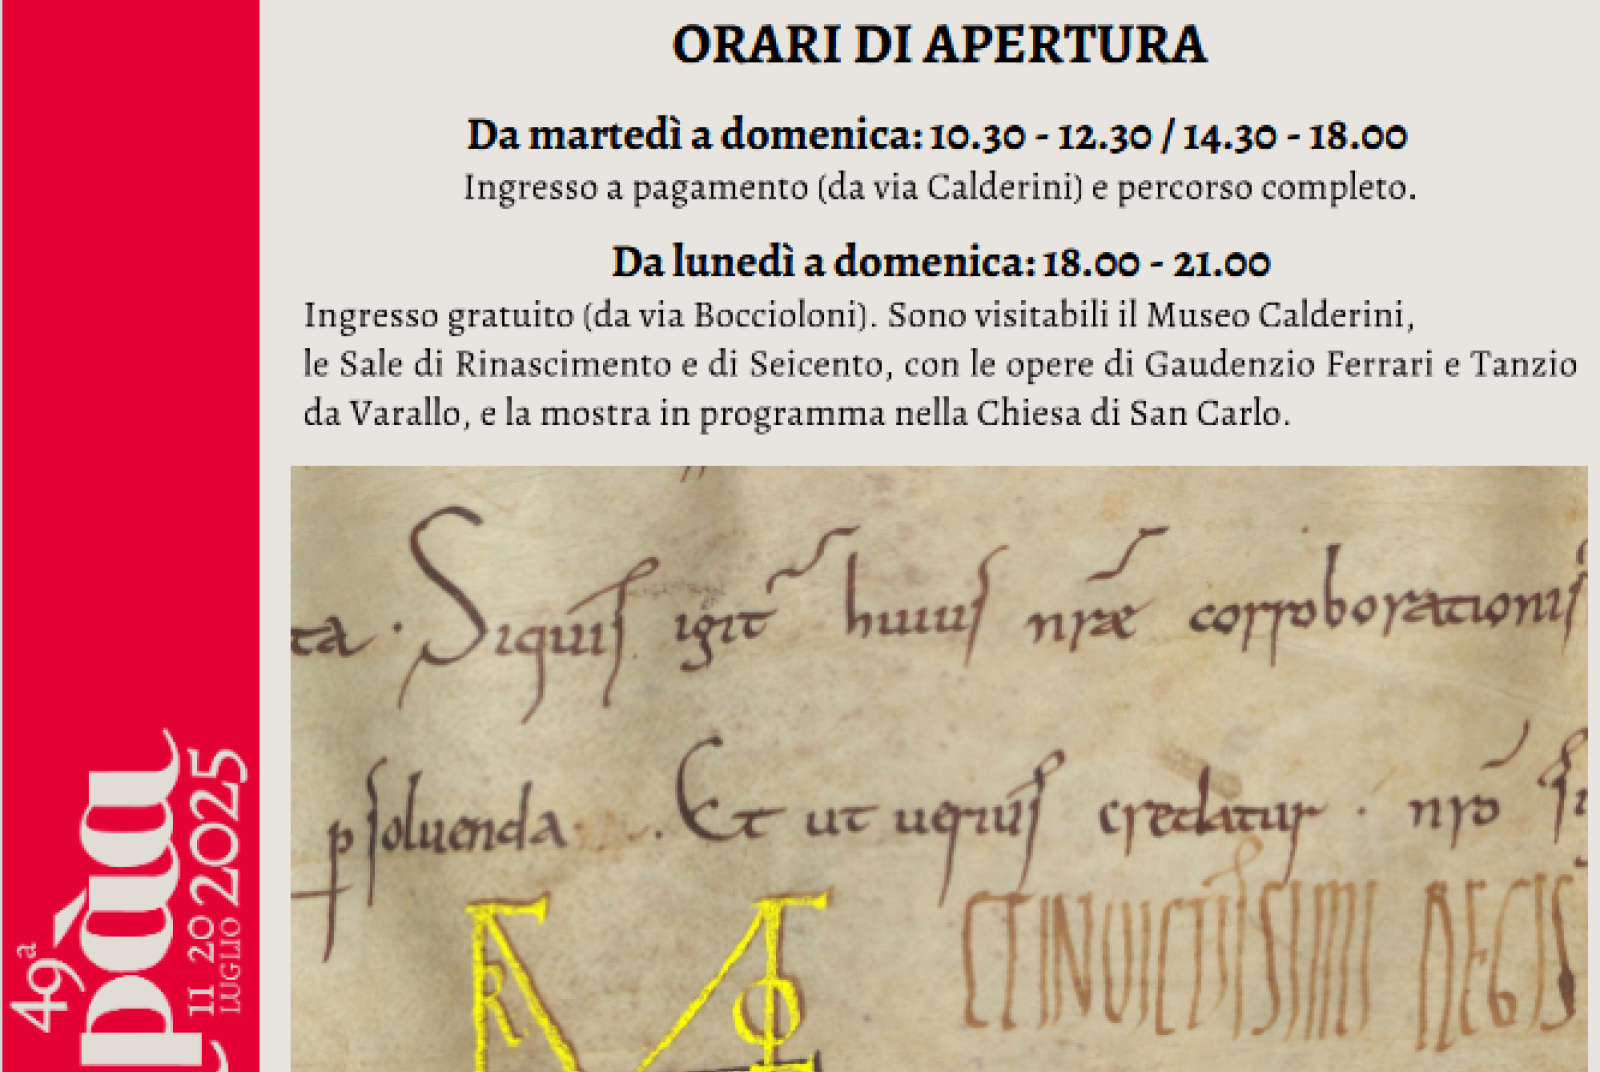 ORARI DI APERTURA
Da martedì a domenica: 10.30 - 12.30 / 14.30 - 18.00
Ingresso a pagamento (da via Calderini) e percorso completo.
Da lunedì a domenica: 18.00 - 21.00
Ingresso gratuito (da via Boccioloni). Sono visitabili il Museo Calderini,
le Sale di Rinascimento e di Seicento, con le opere di Gaudenzio Ferrari e Tanzio
da Varallo, e la mostra in programma nella Chiesa di San Carlo.
49ª
pàa
11 20 2025
LUGLIO
ta . Siquis igit huius nrae corroborationis
psoluenda . Et ut uerius credatur . nro
REGIS